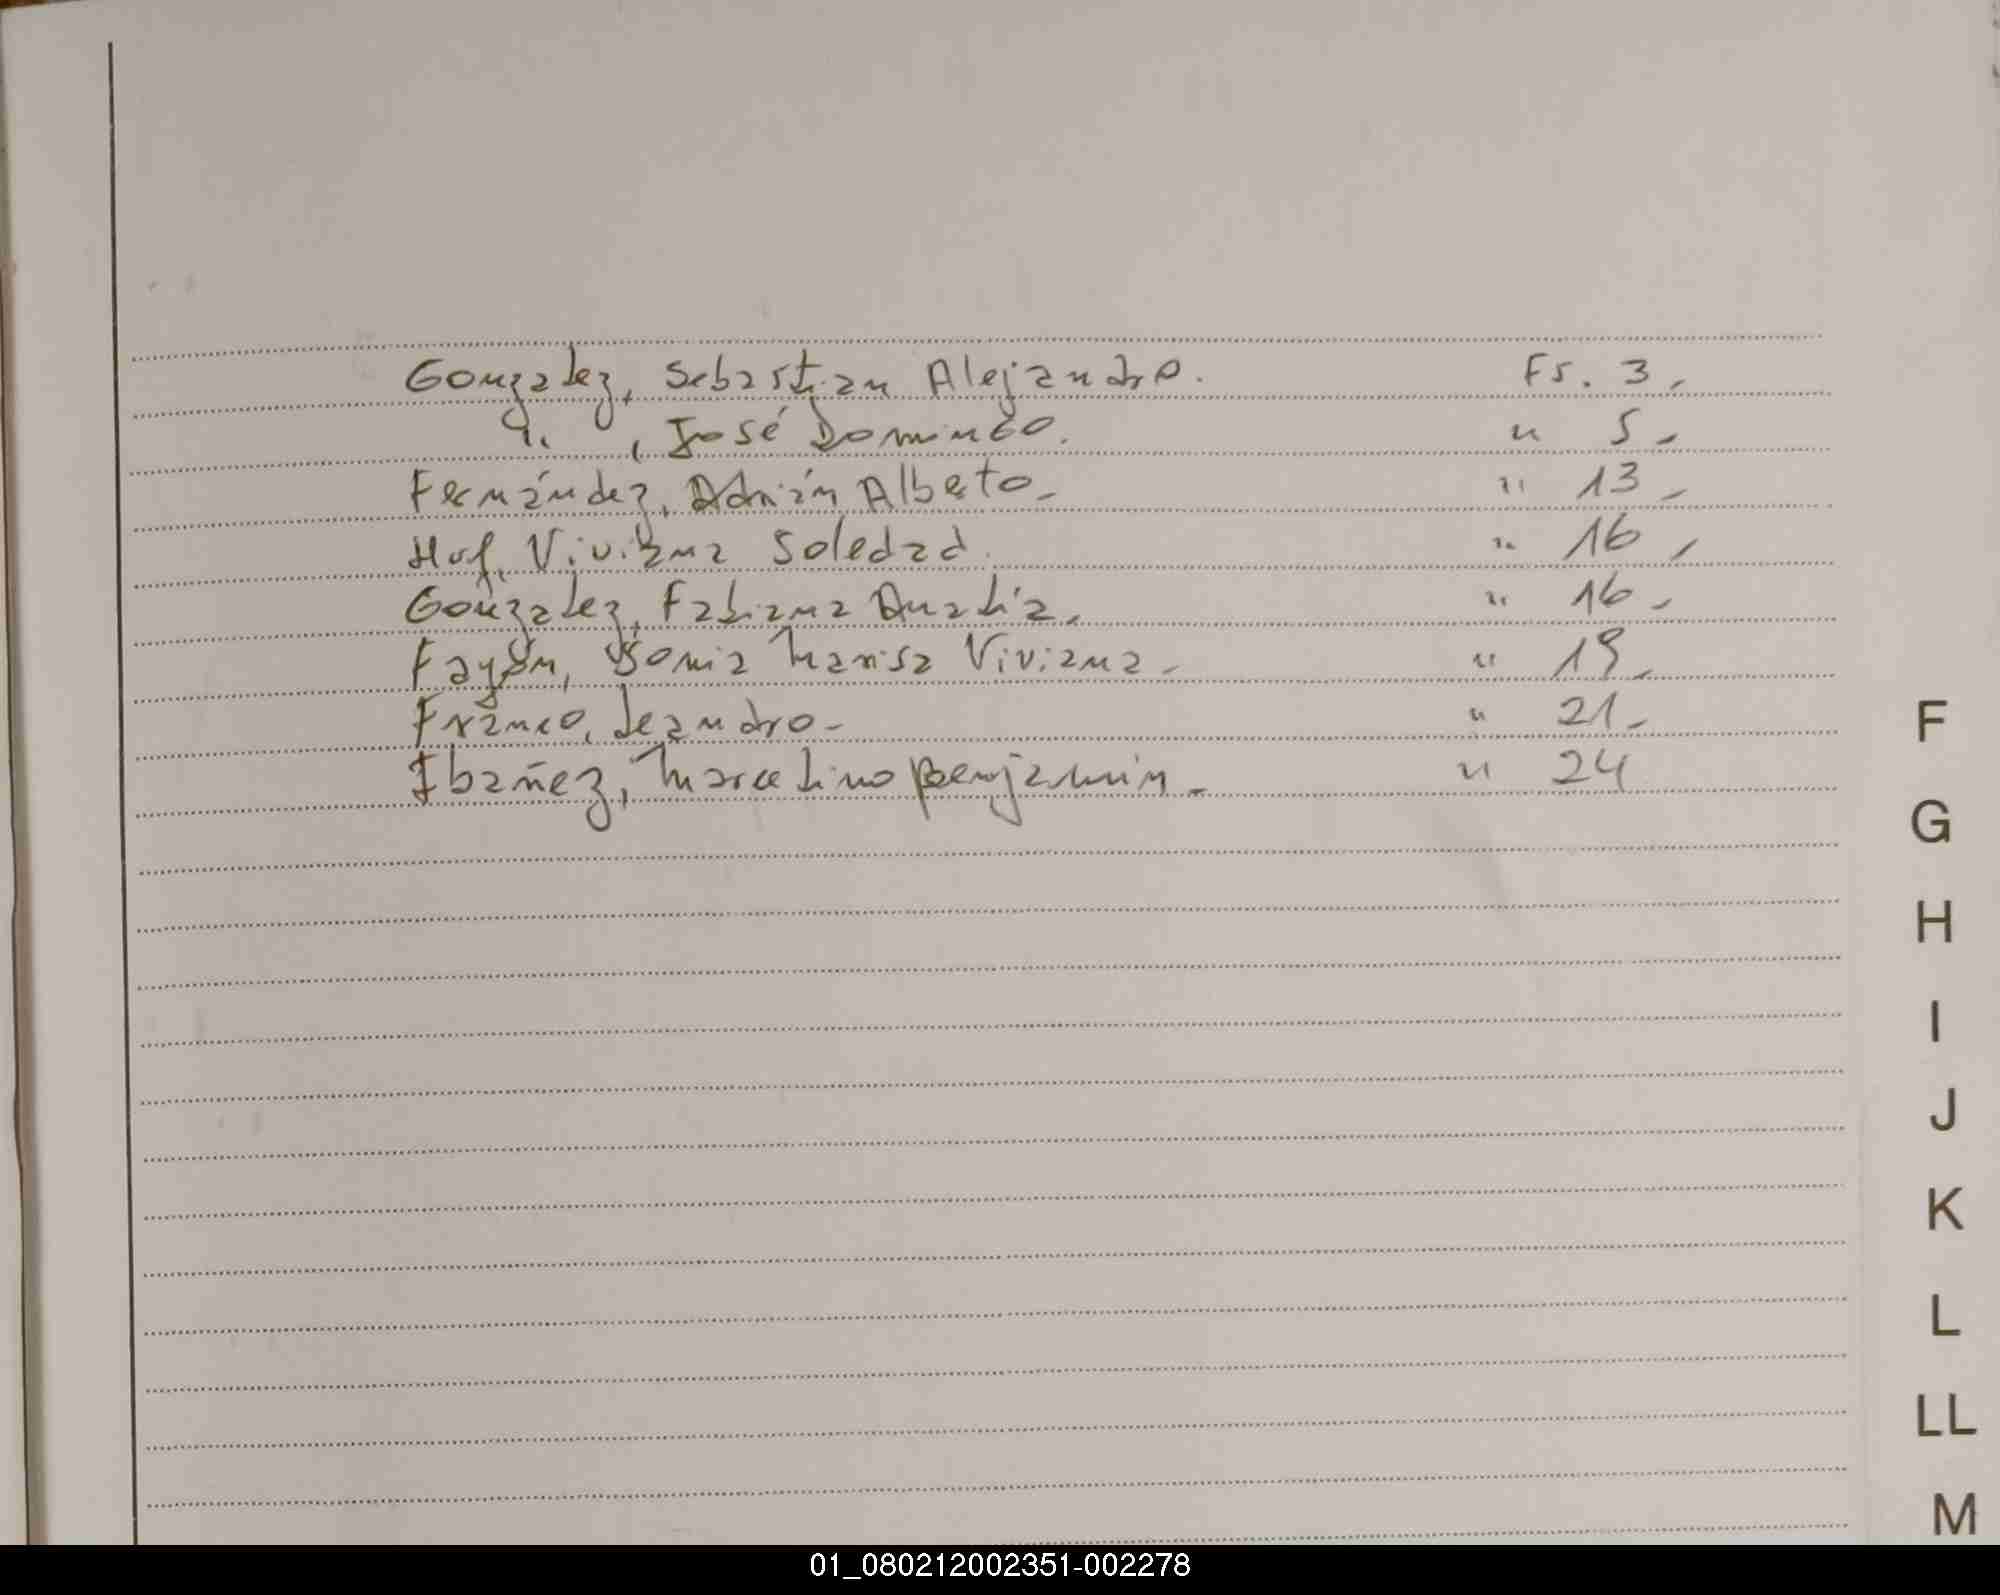 Gonzalez, Sebastian Alejandro. Fs. 3.-
" , José Domingo. " 5.-
Fernández, Adrián Alberto.- " 13.-
Huf, Viviana Soledad. " 16.-
González, Fabiana Analía. " 16.-
Fayón, Sonia Marisa Viviana.- " 19.-
Franco, Leandro.- " 21.-
Ibañez, Marcelino Benjamin.- " 24
F
G
H
I
J
K
L
LL
M
01_080212002351-002278